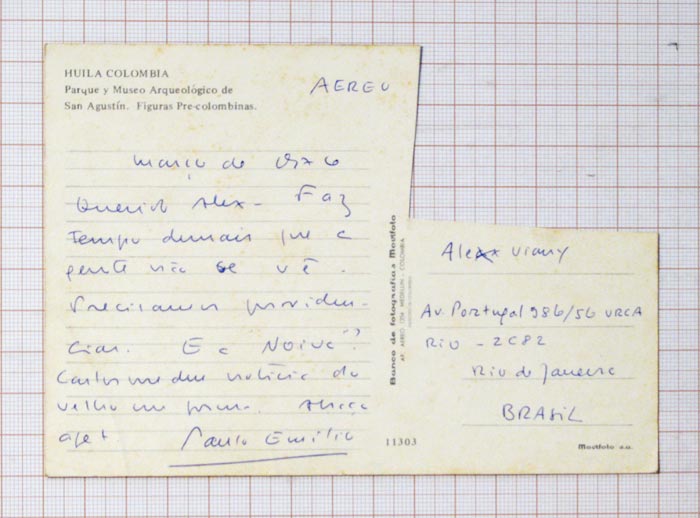 HUILA COLOMBIA
Parque y Museo Arqueológico de
San Agustín. Figuras Pre-colombinas.
AEREO
março de
Querido Alex - Faz
tempo demais que a
gente não se vê.
Precisamos providen-
ciar. E a "NOIVA"?
Carlos me deu notícia do
velho em forma. Abraço
afet. Paulo Emilio
Banco de fotografías Mostfoto
11303
Alex Viany
Av. Portugal 986/56 URCA
RIO - 2C82
Rio de Janeiro
BRASIL
Mostfoto s.a.